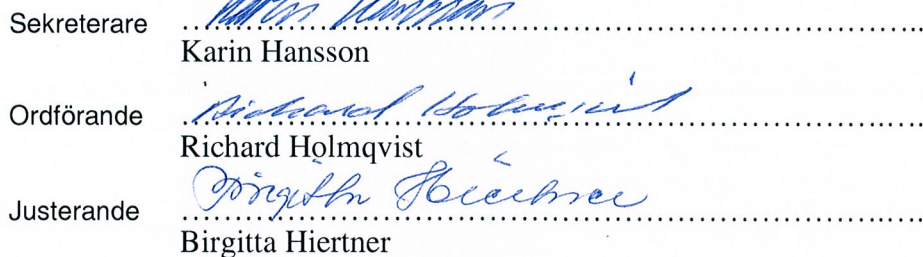 Sekreterare Karin Hansson
Karin Hansson
Ordförande Richard Holmqvist
Richard Holmqvist
Justerande Birgitta Hiertner
Birgitta Hiertner